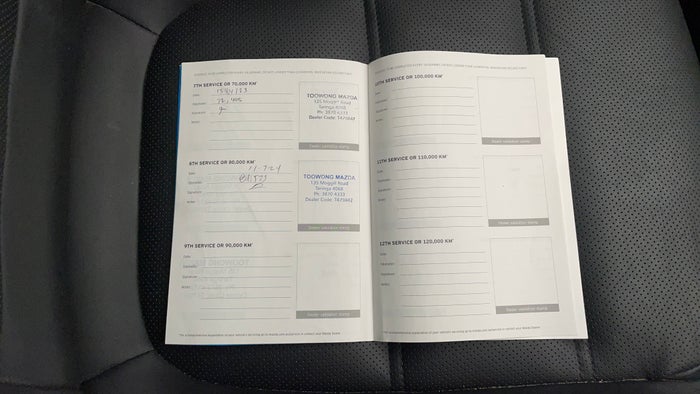 7TH SERVICE OR 70,000 KM*
Date:
Odometer:
Signature:
Notes:
TOOWONG MAZDA
135 Moggill Road
Taringa 4068
Ph: 3870 4333
Dealer Code: T475842
Dealer validation stamp
8TH SERVICE OR 80,000 KM*
Date: 11-7-24
Odometer:
Signature:
Notes:
TOOWONG MAZDA
135 Moggill Road
Taringa 4068
Ph: 3870 4333
Dealer Code: T475842
Dealer validation stamp
9TH SERVICE OR 90,000 KM*
Date:
Odometer:
Signature:
Notes:
Dealer validation stamp
10TH SERVICE OR 100,000 KM*
Date:
Odometer:
Signature:
Notes:
Dealer validation stamp
11TH SERVICE OR 110,000 KM*
Date:
Odometer:
Signature:
Notes:
Dealer validation stamp
12TH SERVICE OR 120,000 KM*
Date:
Odometer:
Signature:
Notes:
Dealer validation stamp